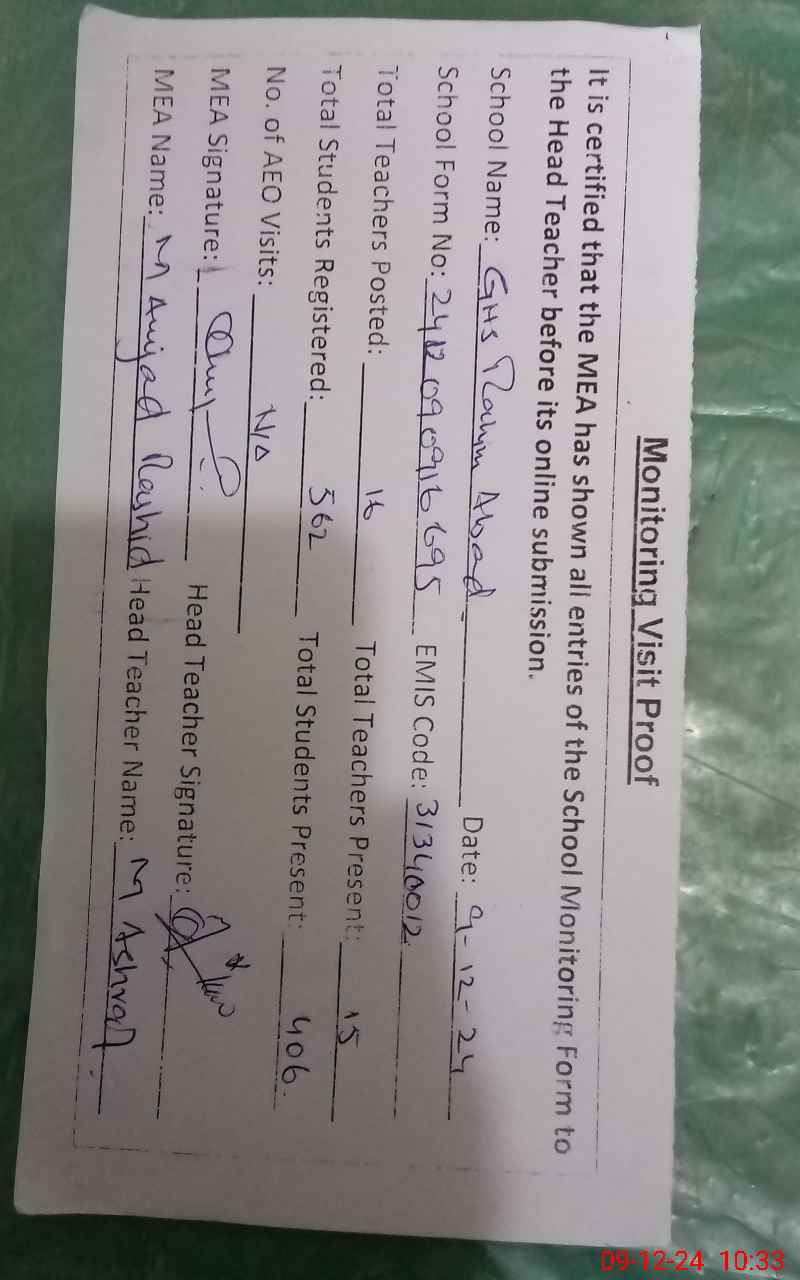 Monitoring Visit Proof
It is certified that the MEA has shown all entries of the School Monitoring Form to
the Head Teacher before its online submission.
School Name: GHS Rahim Abad Date: 9-12-24
School Form No: EMIS Code: 31340012
Total Teachers Posted: 16 Total Teachers Present: 15
Total Students Registered: 562 Total Students Present: 406
No. of AEO Visits: N/A
MEA Signature: Head Teacher Signature:
MEA Name: M Amjad Rashid Head Teacher Name: M Ashraf
09-12-24 10:33